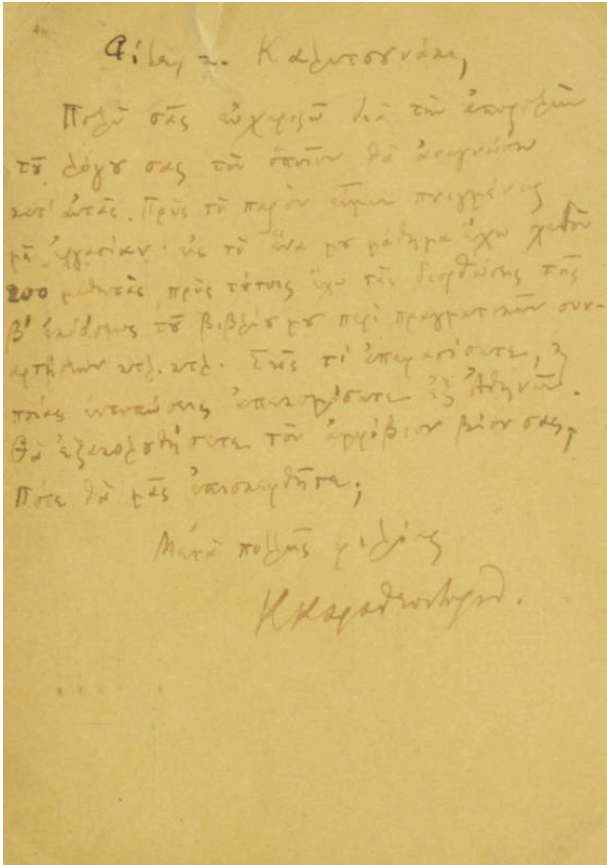 Φίλε κ. Καλιτσουνάκι,
Πολὺ σᾶς εὐχαριστῶ διὰ τὴν ἀποστολὴν
τοῦ λόγου σας τὸν ὁποῖον θὰ ἀναγνώσω
κατ' αὐτάς. Πρὸς τὸ παρὸν εἶμαι πνιγμένος
μὲ ἐργασίαν· εἰς τὸ ἕνα μου μάθημα ἔχω σχεδὸν
200 μαθητάς, πρὸς τούτοις ἔχω τὰς διορθώσεις τῆς
β' ἐκδόσεως τοῦ βιβλίου μου περὶ πραγματικῶν συν-
αρτήσεων κτλ. κτλ. Σεῖς τί ἀπεφασίσατε, καὶ
ποίας ἐντυπώσεις ἀπεκομίσατε ἐξ Ἀθηνῶν.
Θὰ ἐξακολουθήσετε τὸν ἀμφίβιον βίον σας;
Πότε θὰ μᾶς ἐπισκεφθῆτε;
Μετὰ πολλῆς φιλίας
Κ Καραθεοδωρῆ.